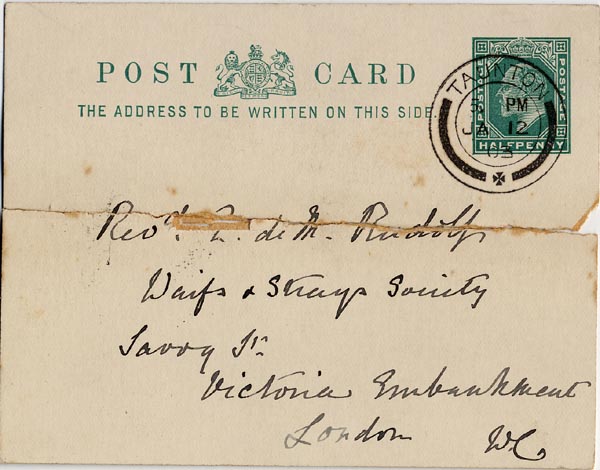 POST CARD
THE ADDRESS TO BE WRITTEN ON THIS SIDE.
POSTAGE
HALFPENNY
TAUNTON
5 PM
JA 12
03
Revd. de M. Rudolf
Waifs & Strays Society
Savoy St.
Victoria Embankment
London W.C.